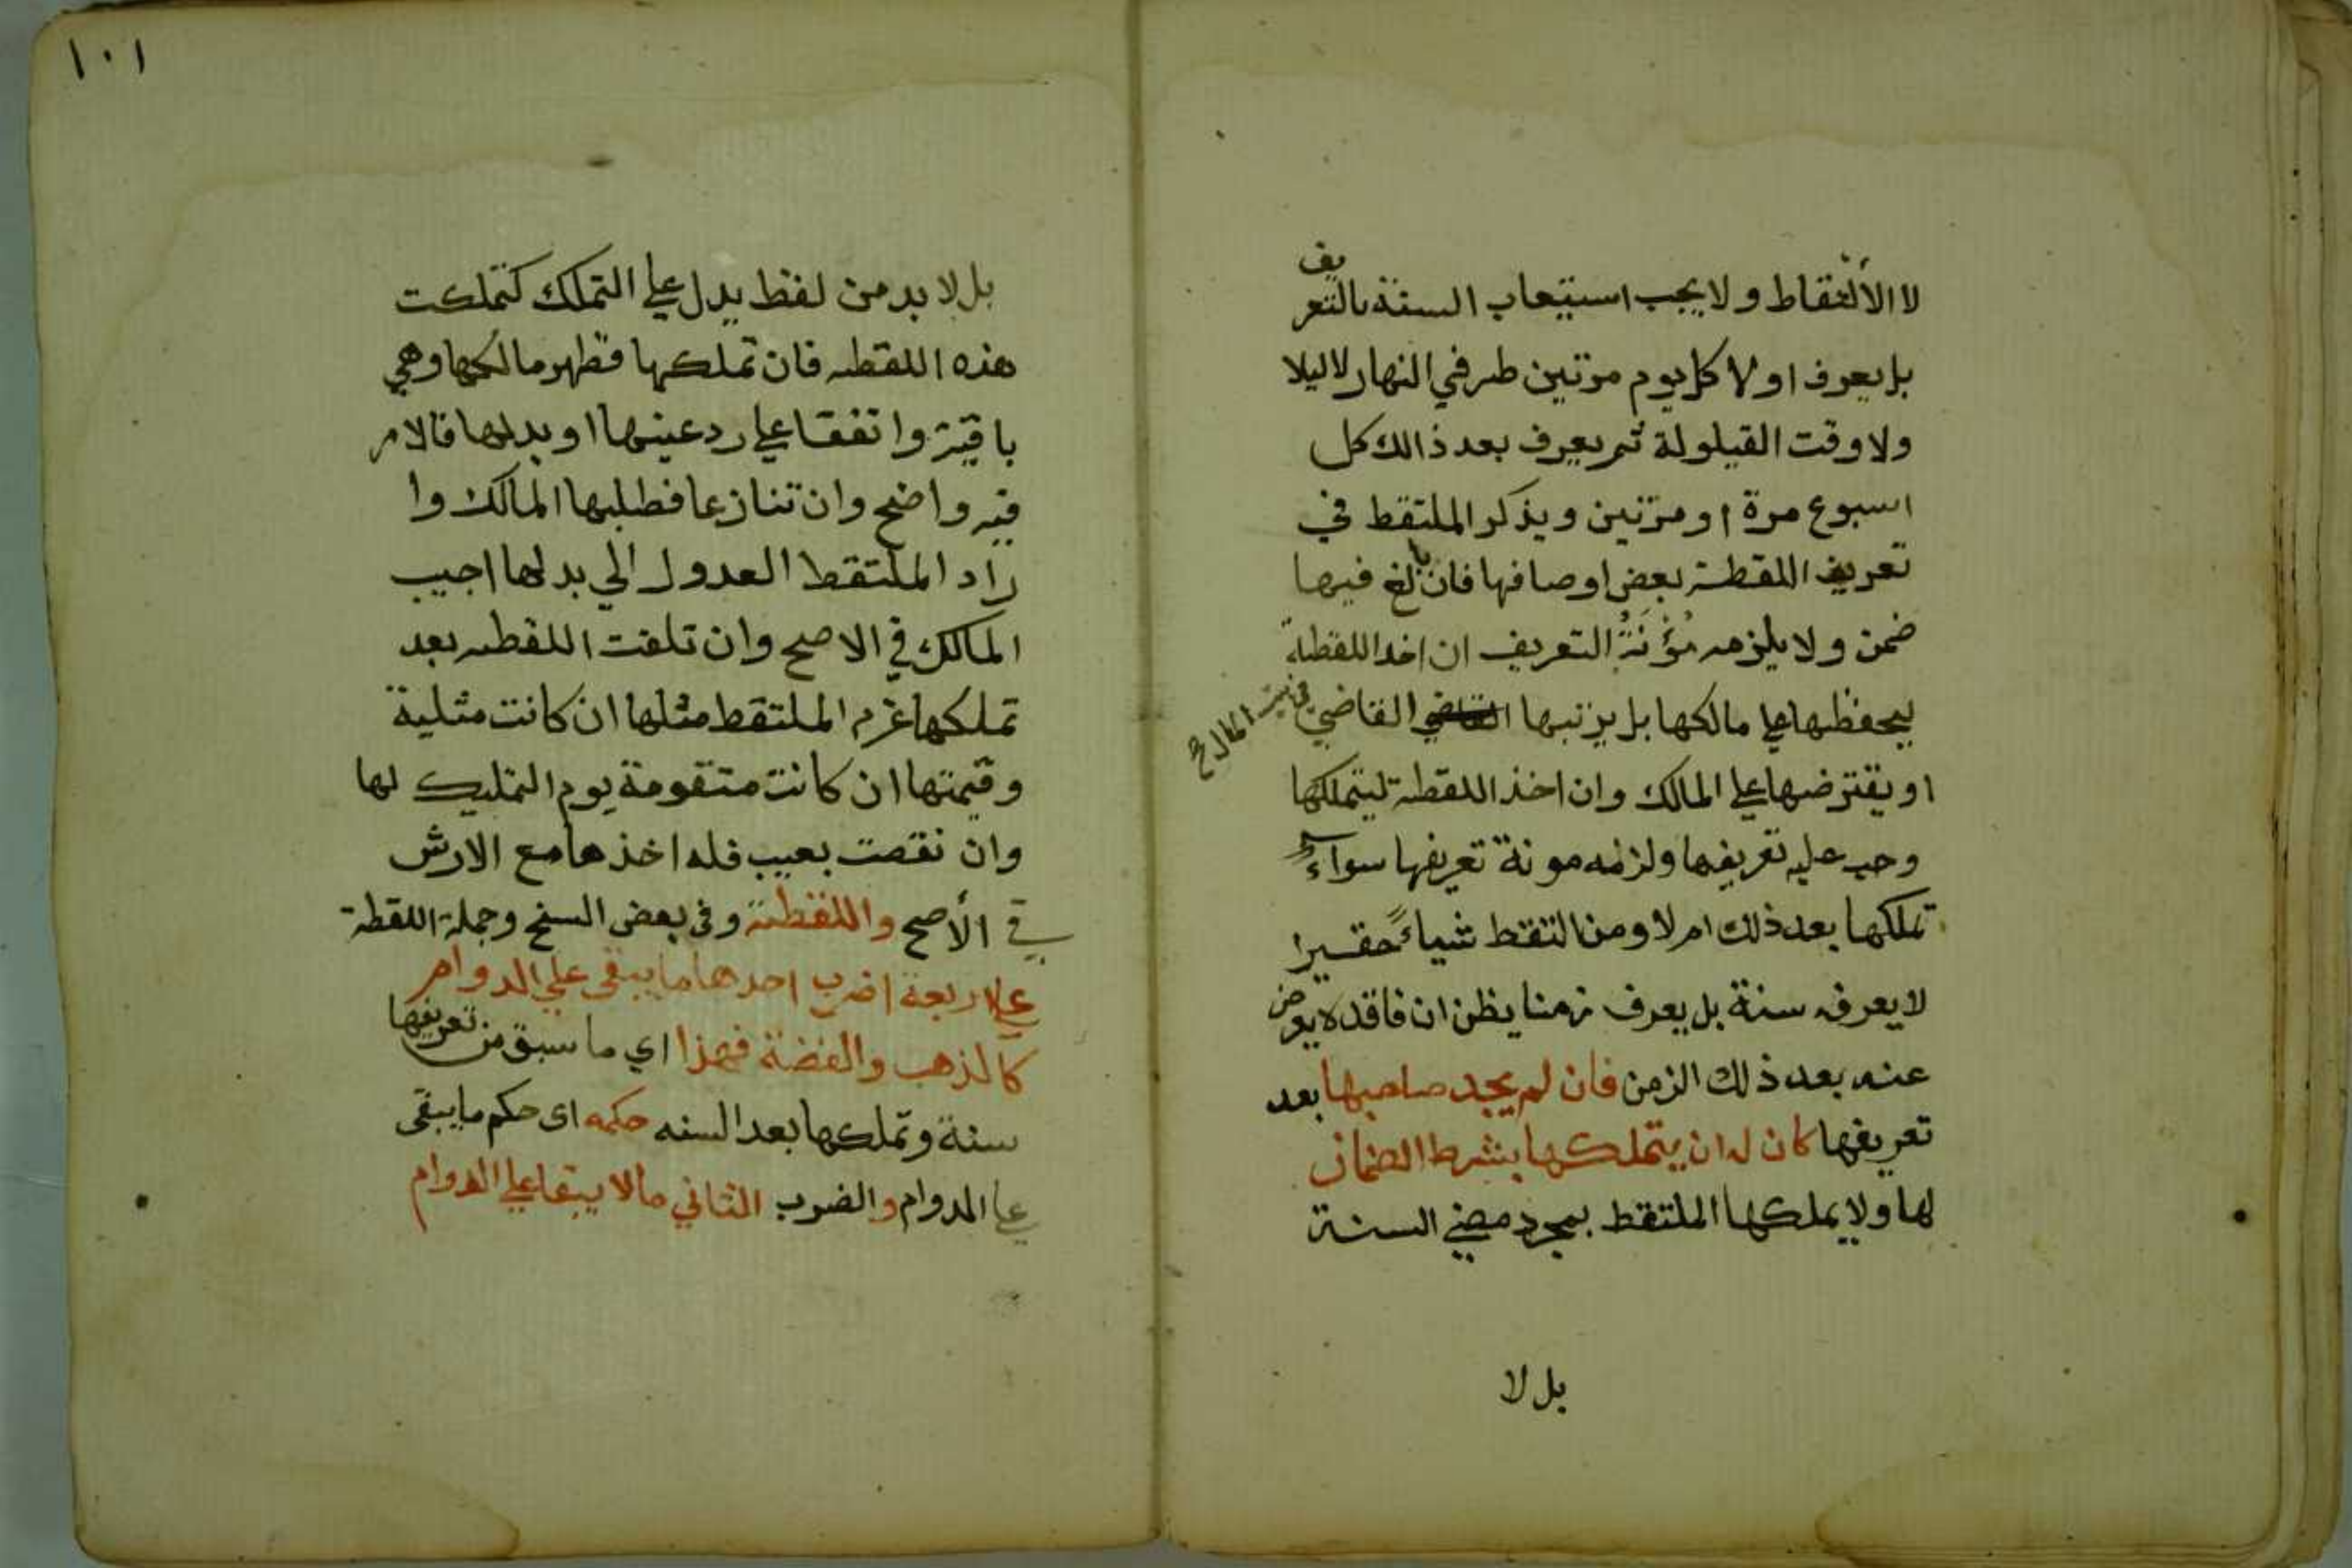 لا الألتقاط ولا يجب استيعاب السنة بالتعريف
بل يعرف اولا كل يوم مرتين طرفي النهار لا ليلا
ولا وقت القيلولة ثم يعرف بعد ذالك كل
اسبوع مرة او مرتين ويذكر الملتقط في
تعريف اللقطة بعض اوصافها فان بالغ فيها
ضمن ولا يلزمه مُؤْنَةُ التعريف ان اخد اللقطة
ليحفظها على مالكها بل يرتبها القاضي من بيت المال صح
او يقترضها على المالك وان اخذ اللقطة ليتملكها
وجب عليه تعريفها ولزمه مونة تعريفها سواء
تملكها بعد ذلك ام لا ومن التقط شياءً حقيرا
لا يعرفه سنة بل يعرف زمنا يظن ان فاقده لا يعرض
عنه بعد ذلك الزمن فان لم يجد صاحبها بعد
تعريفها كان له ان يتملكها بشرط الضمان
لها ولا يملكها الملتقط بمجرد مضي السنة
بل لا
١٠١
بل لا بد من لفظ يدل على التملك كتملكت
هذه اللقطه فان تملكها فظهر مالكها وهي
باقية واتفقا على رد عينها او بدلها فالامر
فيه واضح وان تنازعا فطلبها المالك وا
راد الملتقط العدول الي بدلها اجيب
المالك في الاصح وان تلفت اللقطه بعد
تملكها غرم الملتقط مثلها ان كانت مثلية
وقيمتها ان كانت متقومة يوم التمليك لها
وان نقصت بعيب فله اخذها مع الارش
في الأصح واللقطة وفي بعض السنخ وجملة اللقطة
على اربعة اضرب احدها ما يبقى على الدوام
كالذهب والفضة فهذا اي ما سبق من تعريفها
سنة وتملكها بعد السنه حكمه اى حكم ما يبقى
على الدوام والضرب الثاني ما لا يبقا على الدوام